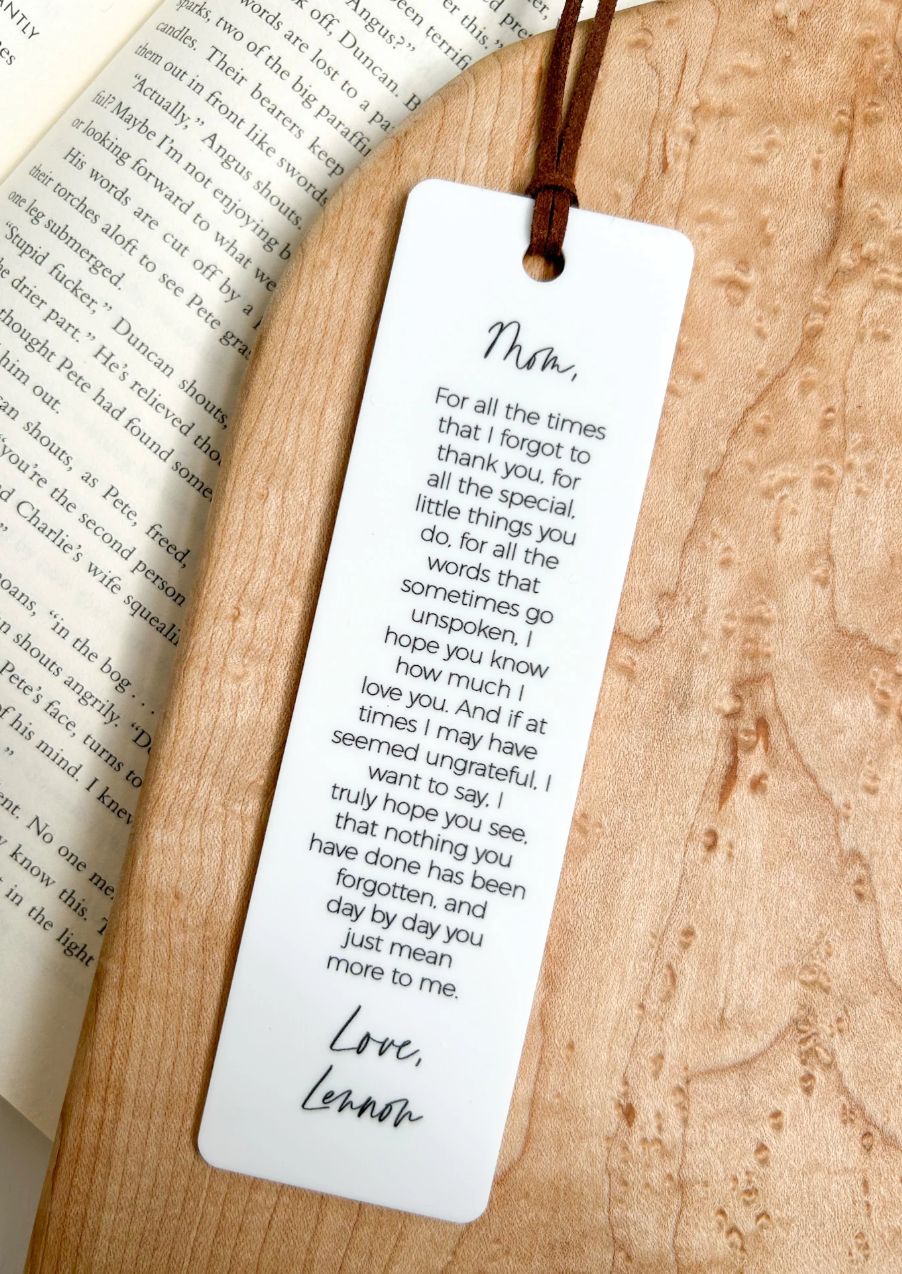 ANTLY
nes
sparks, two of the big paraffi
candles. Their bearers keep
them out in front like swords
"Actually," Angus shouts,
ful? Maybe I'm not enjoying b
or looking forward to what we
His words are cut off by a
their torches aloft to see Pete gra
one leg submerged.
"Stupid fucker," Duncan shouts,
he drier part." He's relieved tho
thought Pete had found some
him out.
can shouts, as Pete, freed,
"you're the second person
nd Charlie's wife squeali
"
moans, "in the bog . . .
n shouts angrily. "D
Pete's face, turns to
of his mind. I knew
."
ent. No one me
y know this. T
t in the light
words are lost to a pa
k off, Duncan. B
Angus?"
een terrifi
er this."
ed pre
Mom,
For all the times
that I forgot to
thank you, for
all the special,
little things you
do, for all the
words that
sometimes go
unspoken, I
hope you know
how much I
love you. And if at
times I may have
seemed ungrateful, I
want to say, I
truly hope you see,
that nothing you
have done has been
forgotten, and
day by day you
just mean
more to me.
Love,
Lennon